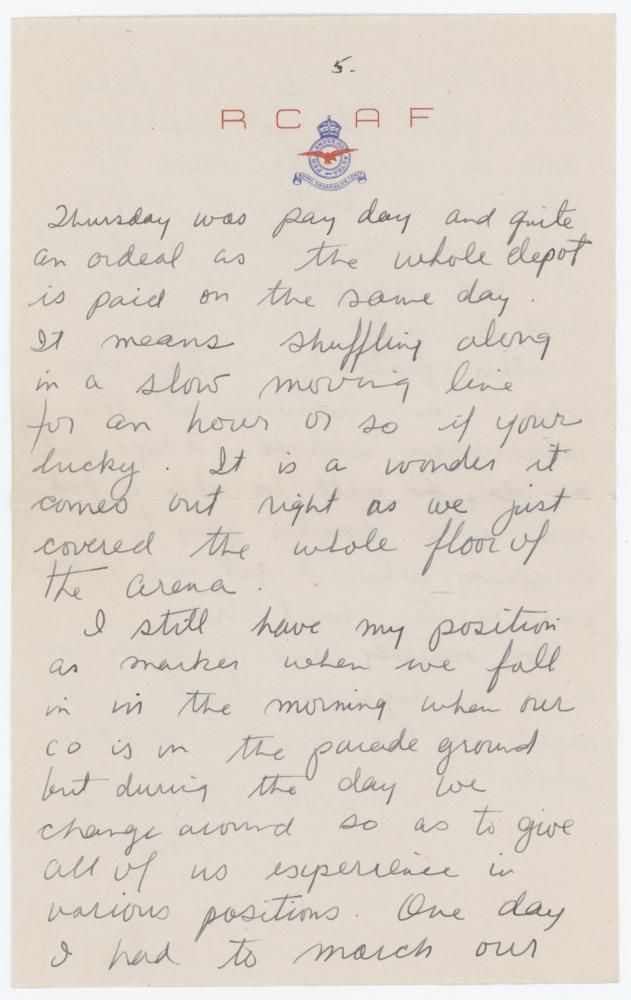 5.
R C A F
PER ARDUA AD ASTRA
ROYAL CANADIAN AIR FORCE
Thursday was pay day and quite
an ordeal as the whole depot
is paid on the same day.
It means shuffling along
in a slow moving line
for an hour or so if your
lucky. It is a wonder it
comes out right as we just
covered the whole floor of
the arena.
I still have my position
as marker when we fall
in in the morning when our
CO is on the parade ground
but during the day we
change around so as to give
all of us experience in
various positions. One day
I had to march our